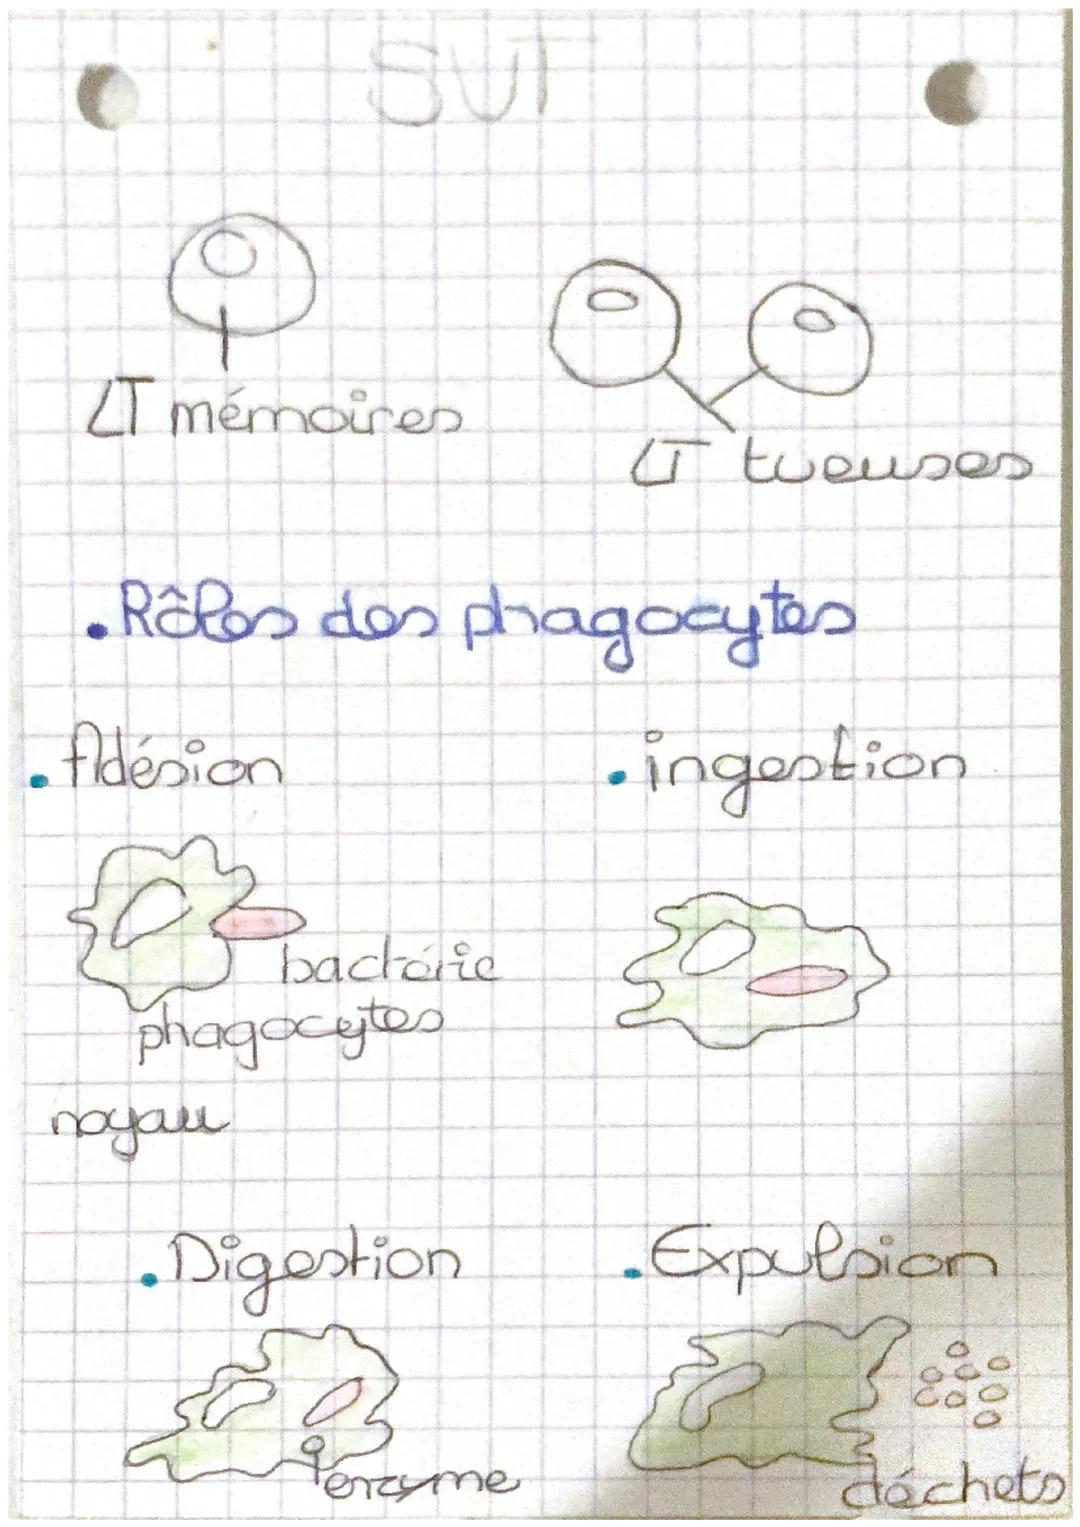 SVT
LT mémoires
LT tueuses
. Rôles des phagocytes
. Adésion
. ingestion
bactérie
phagocytes
noyau
. Digestion
. Expulsion
enzyme
déchets